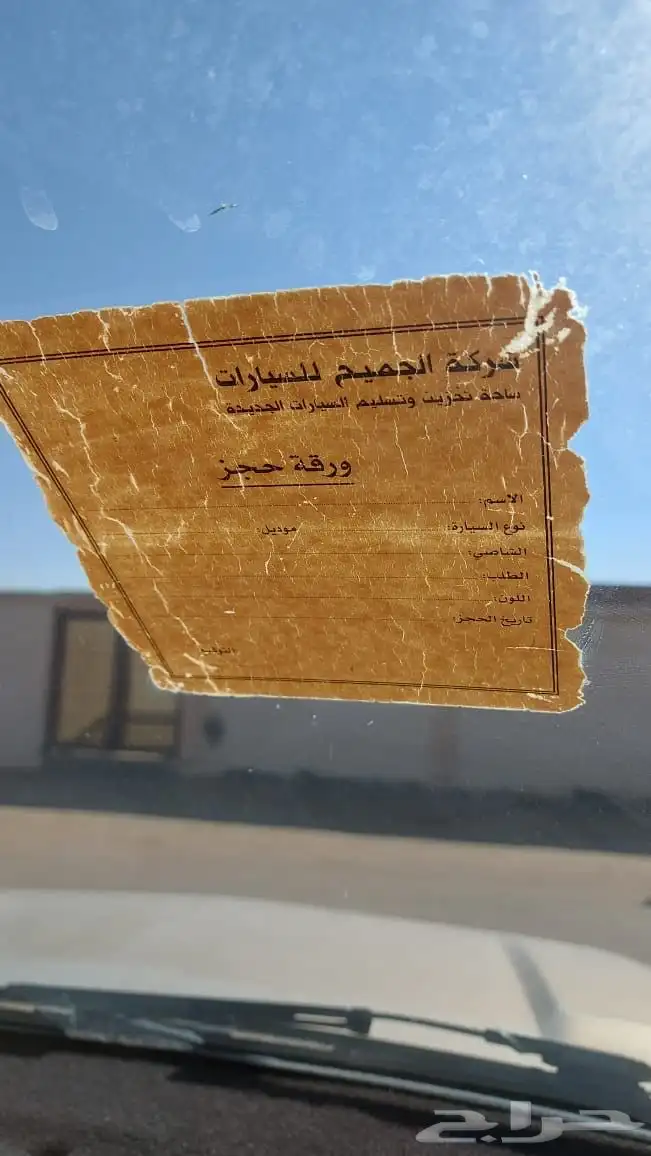 شركة الجميح للسيارات
ساحة تخزين وتسليم السيارات الجديدة
ورقة حجز
الاسم:
نوع السيارة: موديل:
الشاصي:
الطلب:
اللون:
تاريخ الحجز:
التوقيع
حراج